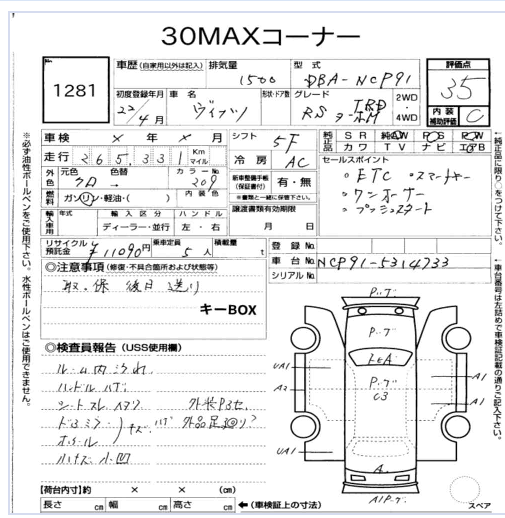 30MAXコーナー
1281
車歴 (自家用以外は記入)
排気量 1500
型式 DBA-NCP91
評価点 35
初度登録年月 22/4月
車名 ヴィッツ
形状・ドア数
グレード RS TRD ターボM
2WD・4WD
内装補助評価 C
車検 × 年 × 月
シフト 5F
純正品 SR 純正AW PS PW
カワ TV ナビ エアB
走行 265,331 Km マイル
冷房 AC
セールスポイント
・ETC ・スマートキー
・ワンオーナー
・プッシュスタート
外色 元色 クロ 色替 カラーNo. 209
燃料 ガソリン・軽油・( ) 内装色
新車整備手帳(保証書付) 有・無
※書類と一緒に保管下さい。
輸入車用 年式 輸入区分 ハンドル
ディーラー・並行 左・右
譲渡書類有効期限
月 日
リサイクル預託金 ¥11090円
乗車定員 5人
積載量 t
登録No.
車台No. NCP91-5314733
シリアルNo.
◎注意事項 (修復・不具合箇所および状態等)
取、保 後日送り
キーBOX
◎検査員報告 (USS使用欄)
ルーム内汚れ
ハンドルハゲ
外品足
小凹
P.ブ
P.ブ
P.ブ
C3
UA1
A2
UA1
A1
A1
A
A1P.ブ
スペア
【荷台内寸】約 × × (cm)
長さ cm 幅 cm 高さ cm ←(車検証上の寸法)
※必ず油性ボールペンをご使用下さい。水性ボールペンはご使用できません。
←純正品に限り○をつけて下さい。
←車台番号は左詰めで車検証記載の通りご記入下さい。